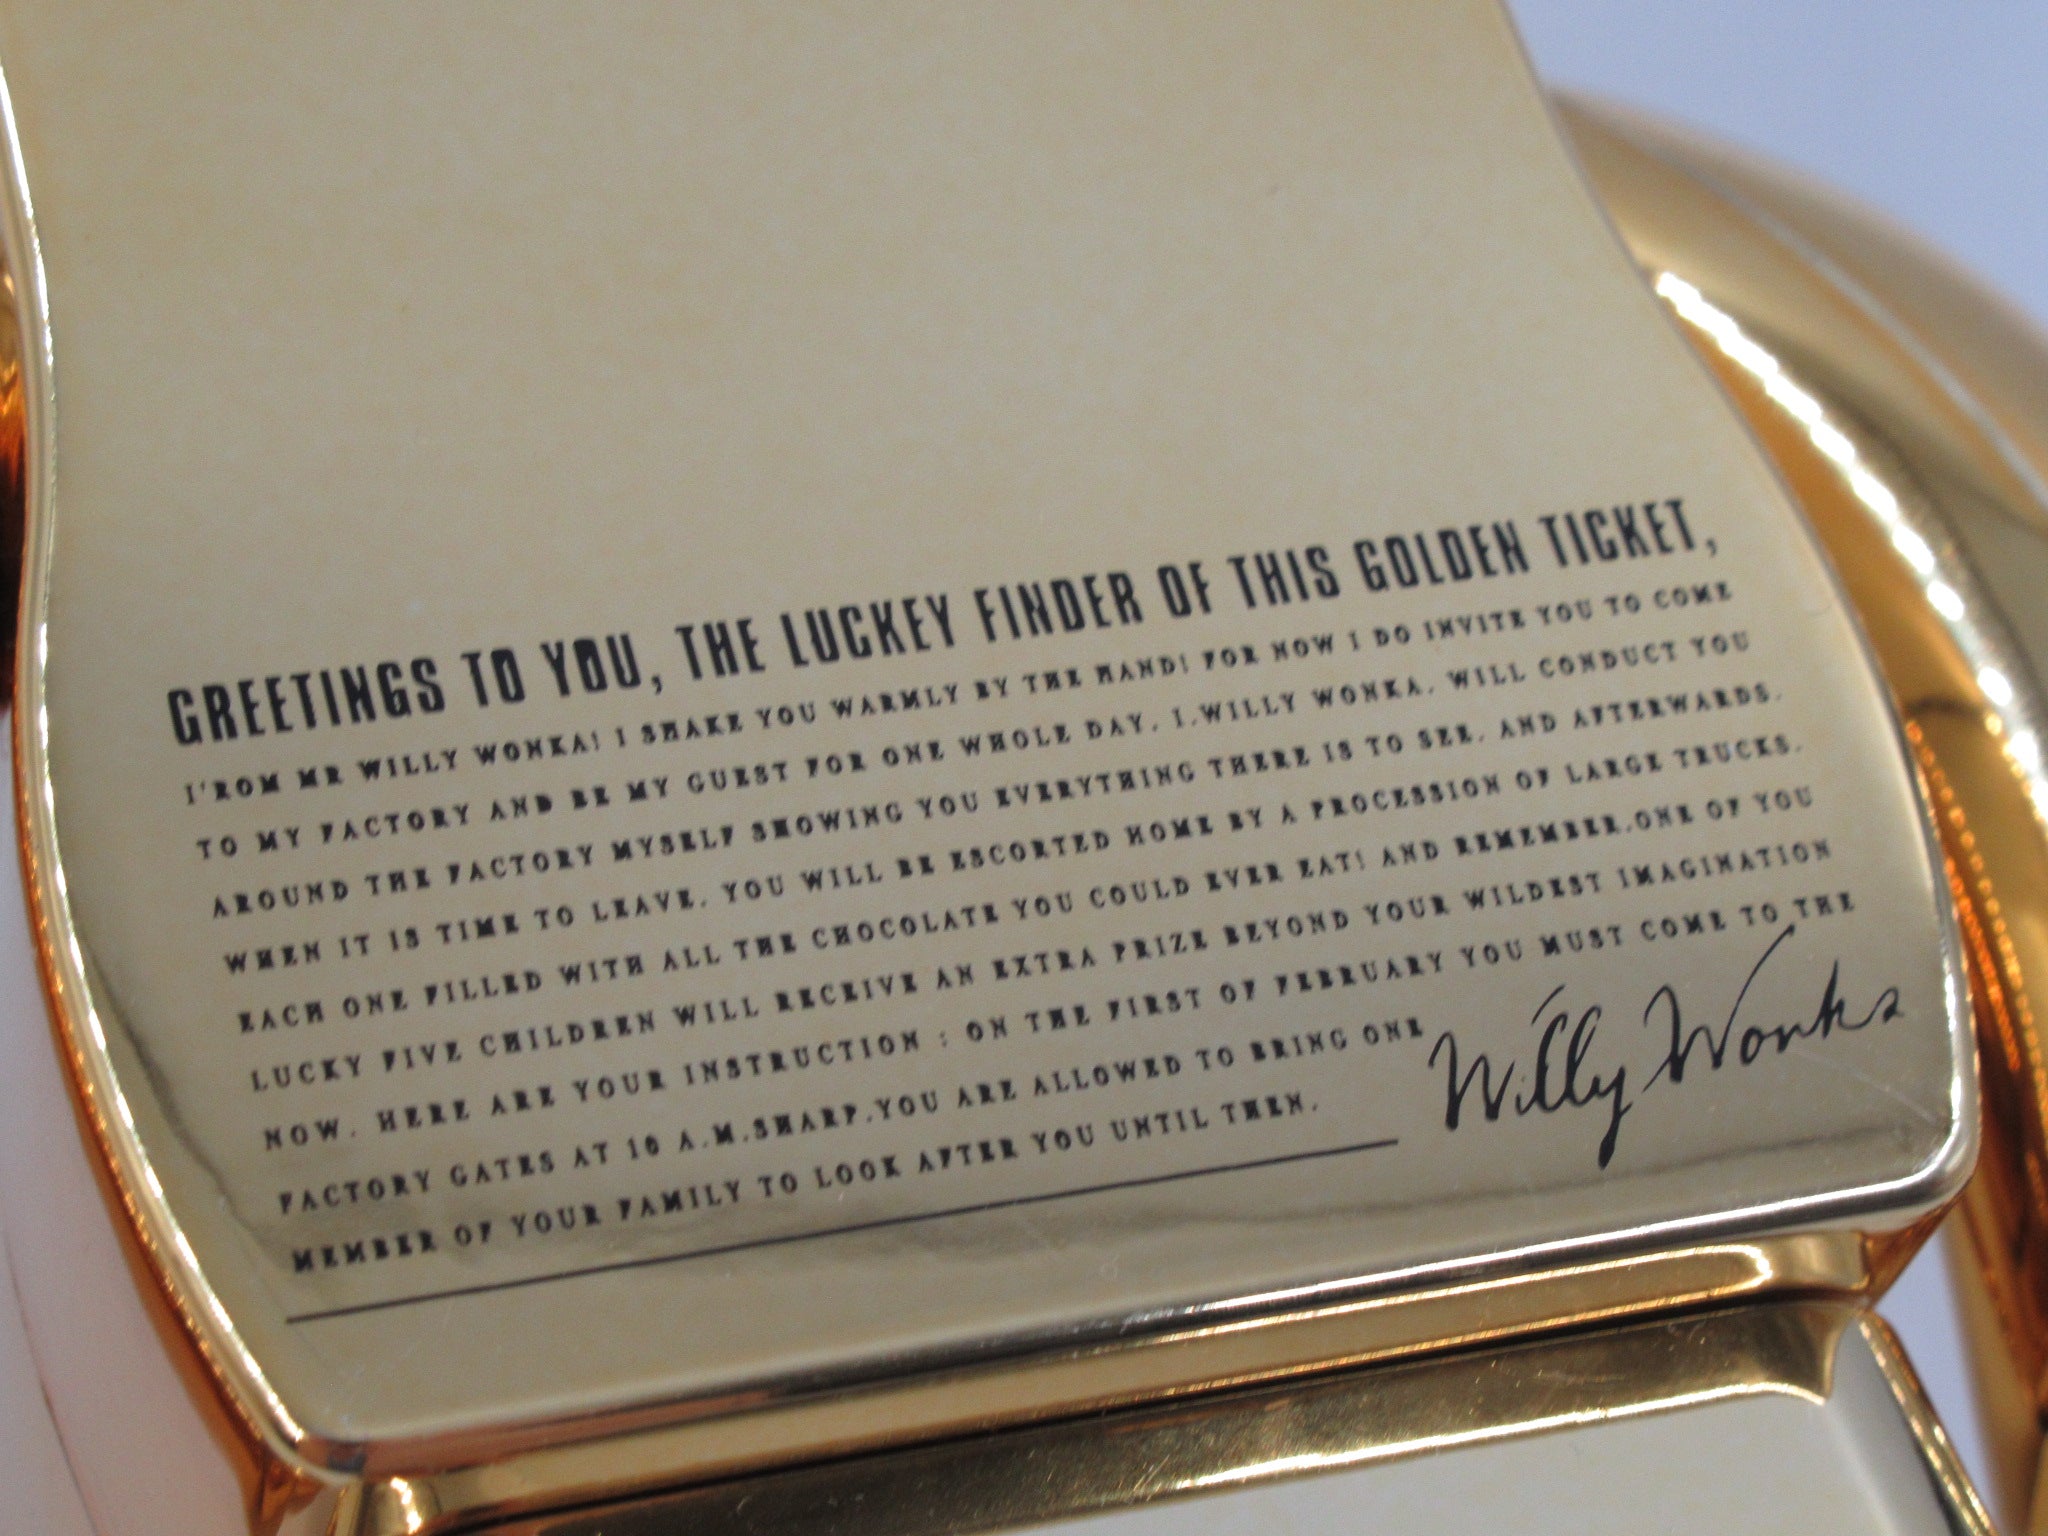 GREETINGS TO YOU, THE LUCKEY FINDER OF THIS GOLDEN TICKET,
I'ROM MR WILLY WONKA! I SHAKE YOU WARMLY BY THE HAND! FOR NOW I DO INVITE YOU TO COME
TO MY FACTORY AND BE MY GUEST FOR ONE WHOLE DAY. I.WILLY WONKA. WILL CONDUCT YOU
AROUND THE FACTORY MYSELF SHOWING YOU EVERYTHING THERE IS TO SEE. AND AFTERWARDS.
WHEN IT IS TIME TO LEAVE. YOU WILL BE ESCORTED HOME BY A PROCESSION OF LARGE TRUCKS.
EACH ONE FILLED WITH ALL THE CHOCOLATE YOU COULD EVER EAT! AND REMEMBER.ONE OF YOU
LUCKY FIVE CHILDREN WILL RECEIVE AN EXTRA PRIZE BEYOND YOUR WILDEST IMAGINATION
NOW. HERE ARE YOUR INSTRUCTION : ON THE FIRST OF FEBRUARY YOU MUST COME TO THE
FACTORY GATES AT 10 A.M.SHARP.YOU ARE ALLOWED TO BRING ONE
MEMBER OF YOUR FAMILY TO LOOK AFTER YOU UNTIL THEN.
Willy Wonka